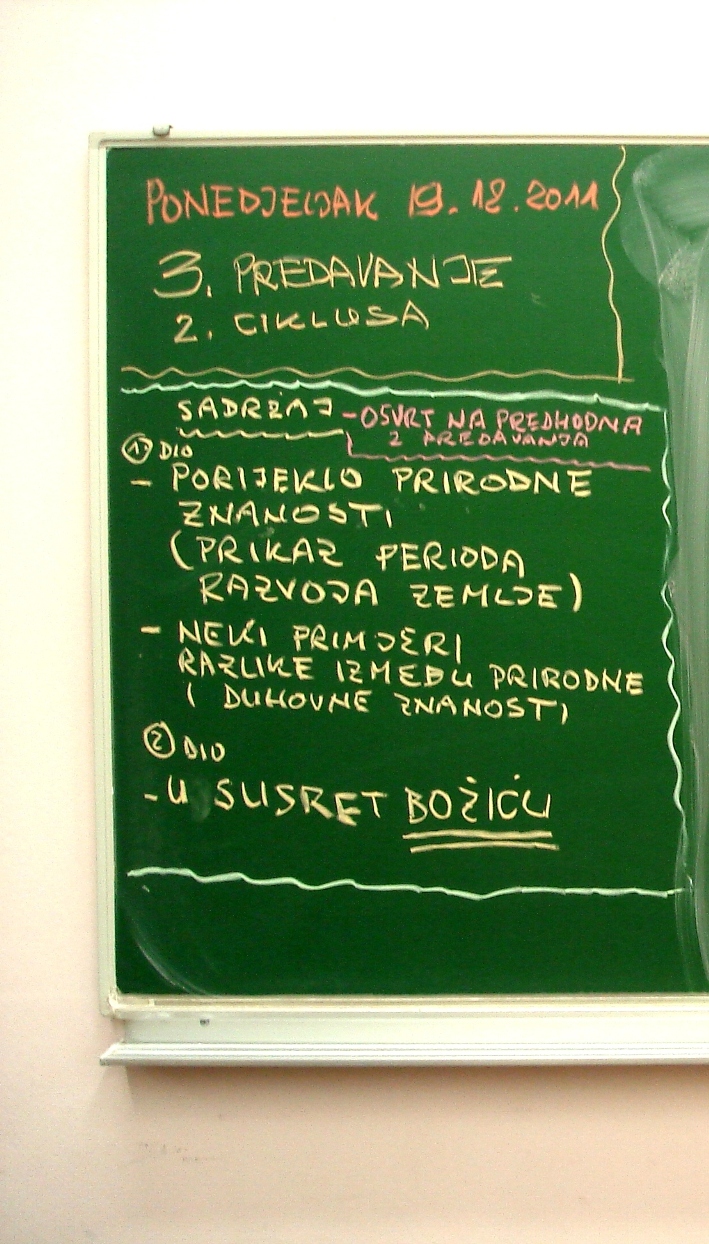 PONEDJELJAK 19.12.2011
3. PREDAVANJE
2. CIKLUSA
SADRŽAJ - OSVRT NA PREDHODNA
2 PREDAVANJA
1 DIO
- PORIJEKLO PRIRODNE
ZNANOSTI
(PRIKAZ PERIODA
RAZVOJA ZEMLJE)
- NEKI PRIMJERI
RAZLIKE IZMEĐU PRIRODNE
I DUHOVNE ZNANOSTI
2 DIO
- U SUSRET BOŽIĆU